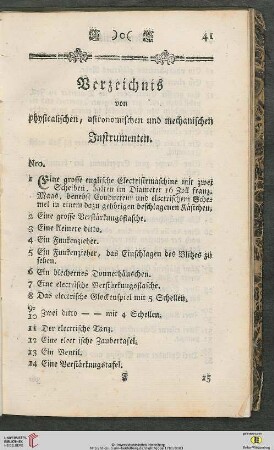 )o( 41
Verzeichnis
von
physicalischen, astronomischen und mechanischen
Instrumenten.
Nro.
1 Eine grosse englische Electrisiemaschine mit zwei
Scheiben, halten im Diameter 16 Zoll franz.
Maas, benebst Conductern und electrischen Sche-
mel in einem dazu gehörigen beschlagenen Kästchen.
2 Eine grosse Verstärkungsflasche.
3 Eine kleinere ditto.
4 Ein Funkenzieher.
5 Ein Funkenzieher, das Einschlagen des Blitzes zu
sehen.
6 Ein blechernes Donnerhäuschen.
7 Eine electrische Verstärkungsflasche.
8 Das electrische Glockenspiel mit 5 Schellen.
9-
10 Zwei ditto — — mit 4 Schellen.
11 Der electrische Tanz.
12 Eine electrische Zaubertafel.
13 Ein Ventil.
14 Eine Verstärkungstafel.
15